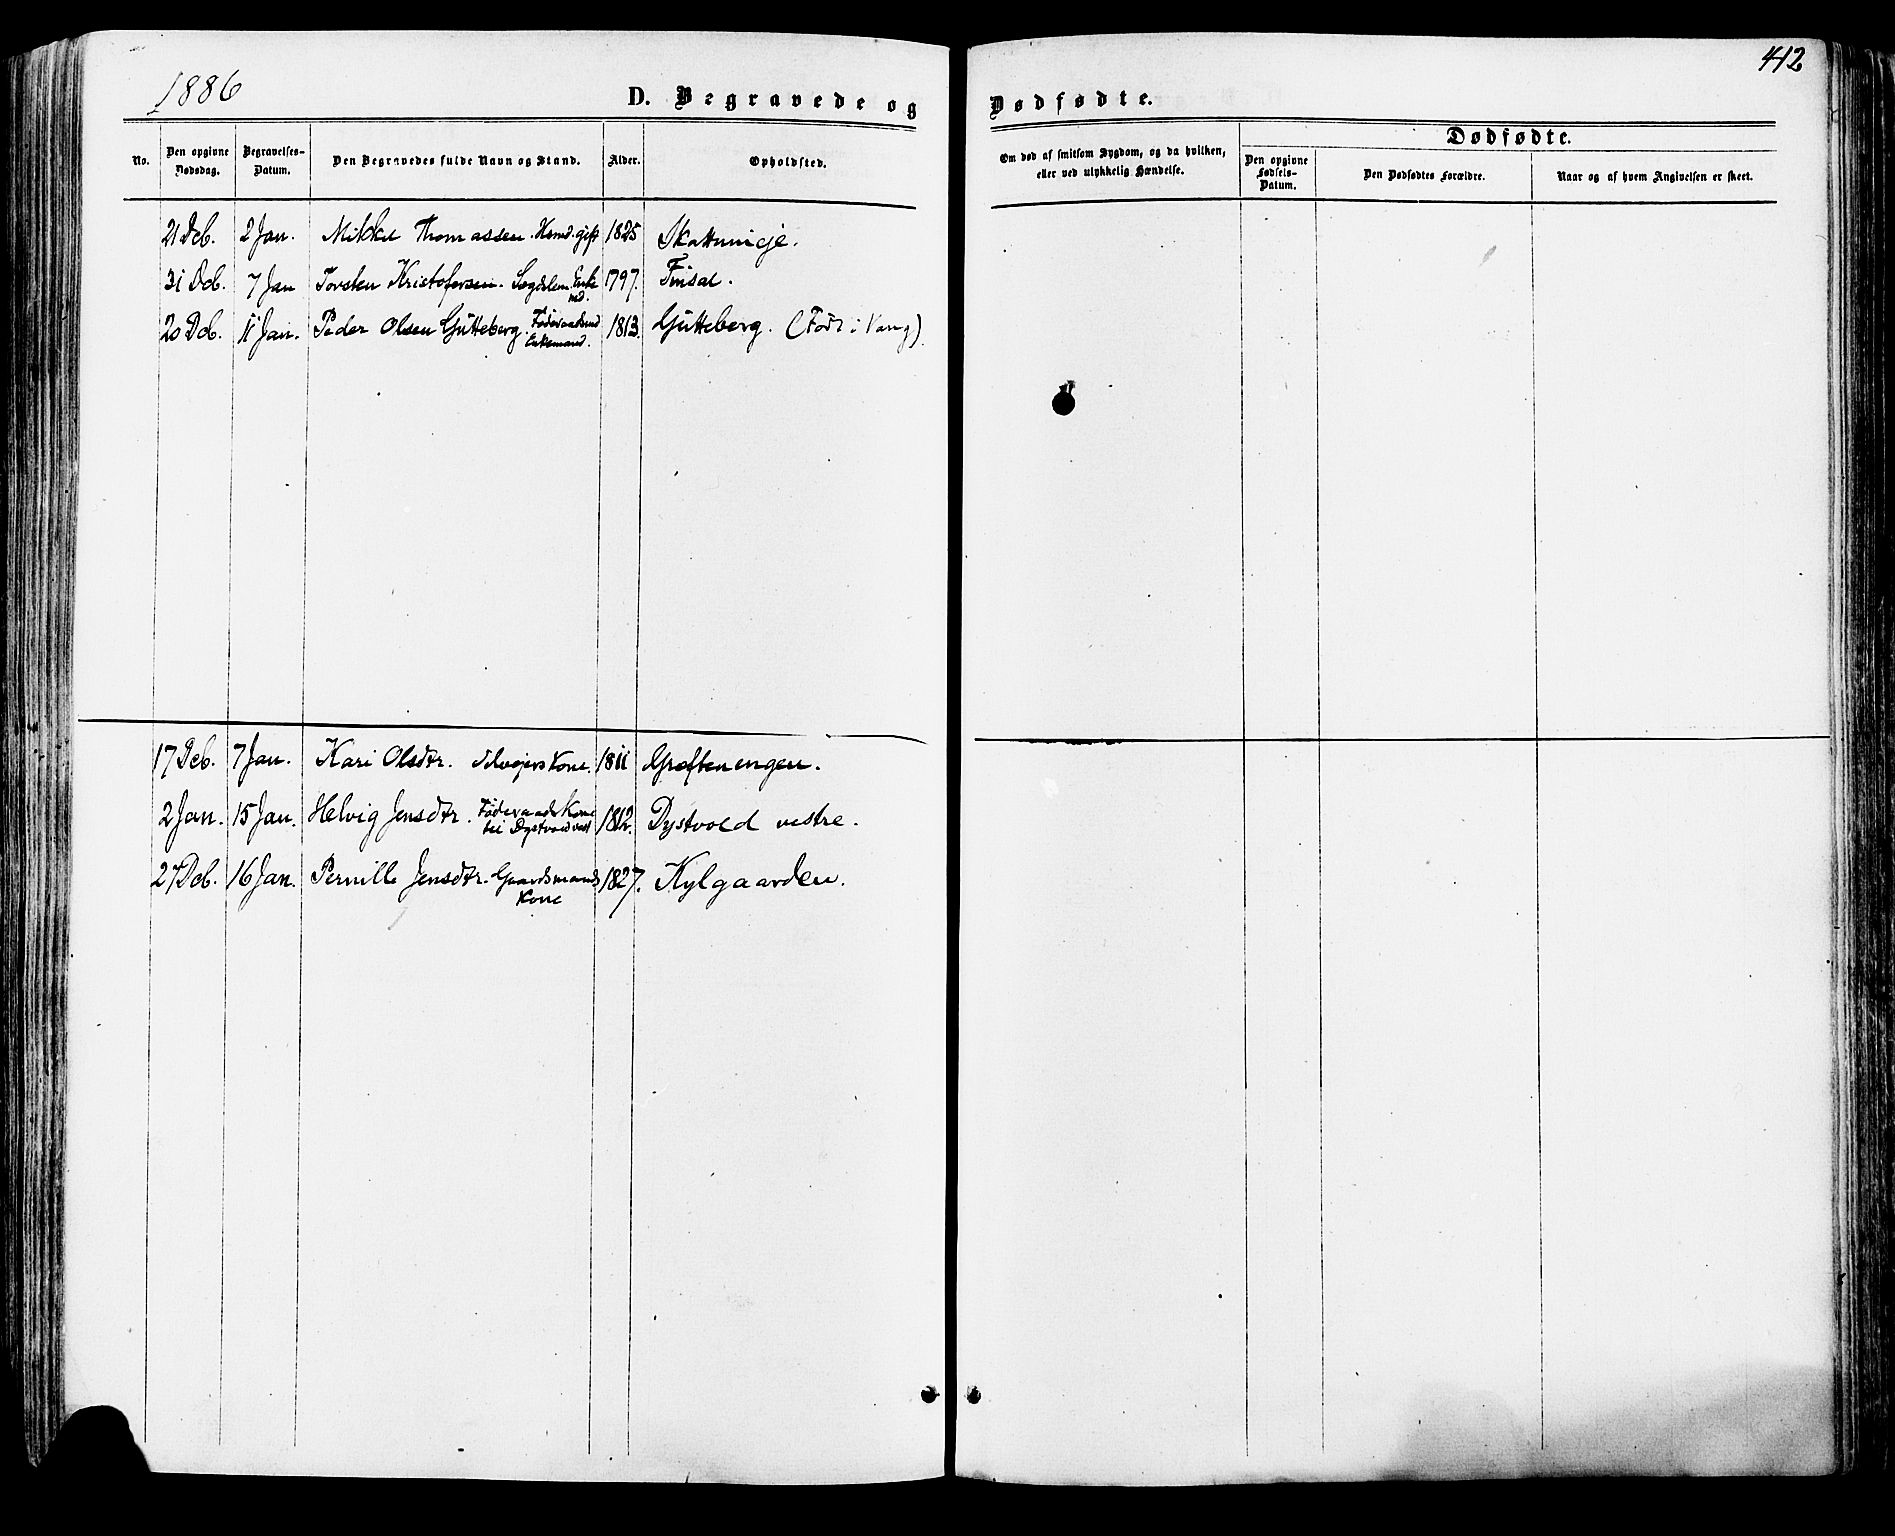 1886
412
D. Begravede og Dødfødte.
Dødfødte.
No.
Den opgivne Dødsdag.
Begravelses-Datum.
Den Begravedes fulde Navn og Stand.
Alder.
Opholdsted.
Om død af smitsom Sygdom, og da hvilken, eller ved ulykkelig Hændelse.
Den opgivne Fødsels-Datum.
Den Dødfødtes Forældre.
Naar og af hvem Angivelsen er skeet.
21 Dcb. 2 Jan. Mikkel Thomassen. Hsmd. gift 1825
31 Dcb. 7 Jan Torsten Kristofersen. Lægdslem. Enkemd. 1797.
20 Dcb. 11 Jan. Peder Olsen Gütteberg. Føderaadsmd Enkemand. 1813. Gütteberg. (Født i Vang).
17 Dcb. 7 Jan. Kari Olsdtr. Selvejers Kone. 1811 Grøftenengen.
2 Jan. 15 Jan. Helvig Jensdtr. Føderaads Kone til Dystvold vest 1812. Dystvold vestre.
27 Dcb. 16 Jan. Pernille Jensdtr. Gaardmands Kone 1827. Kylgaarden.